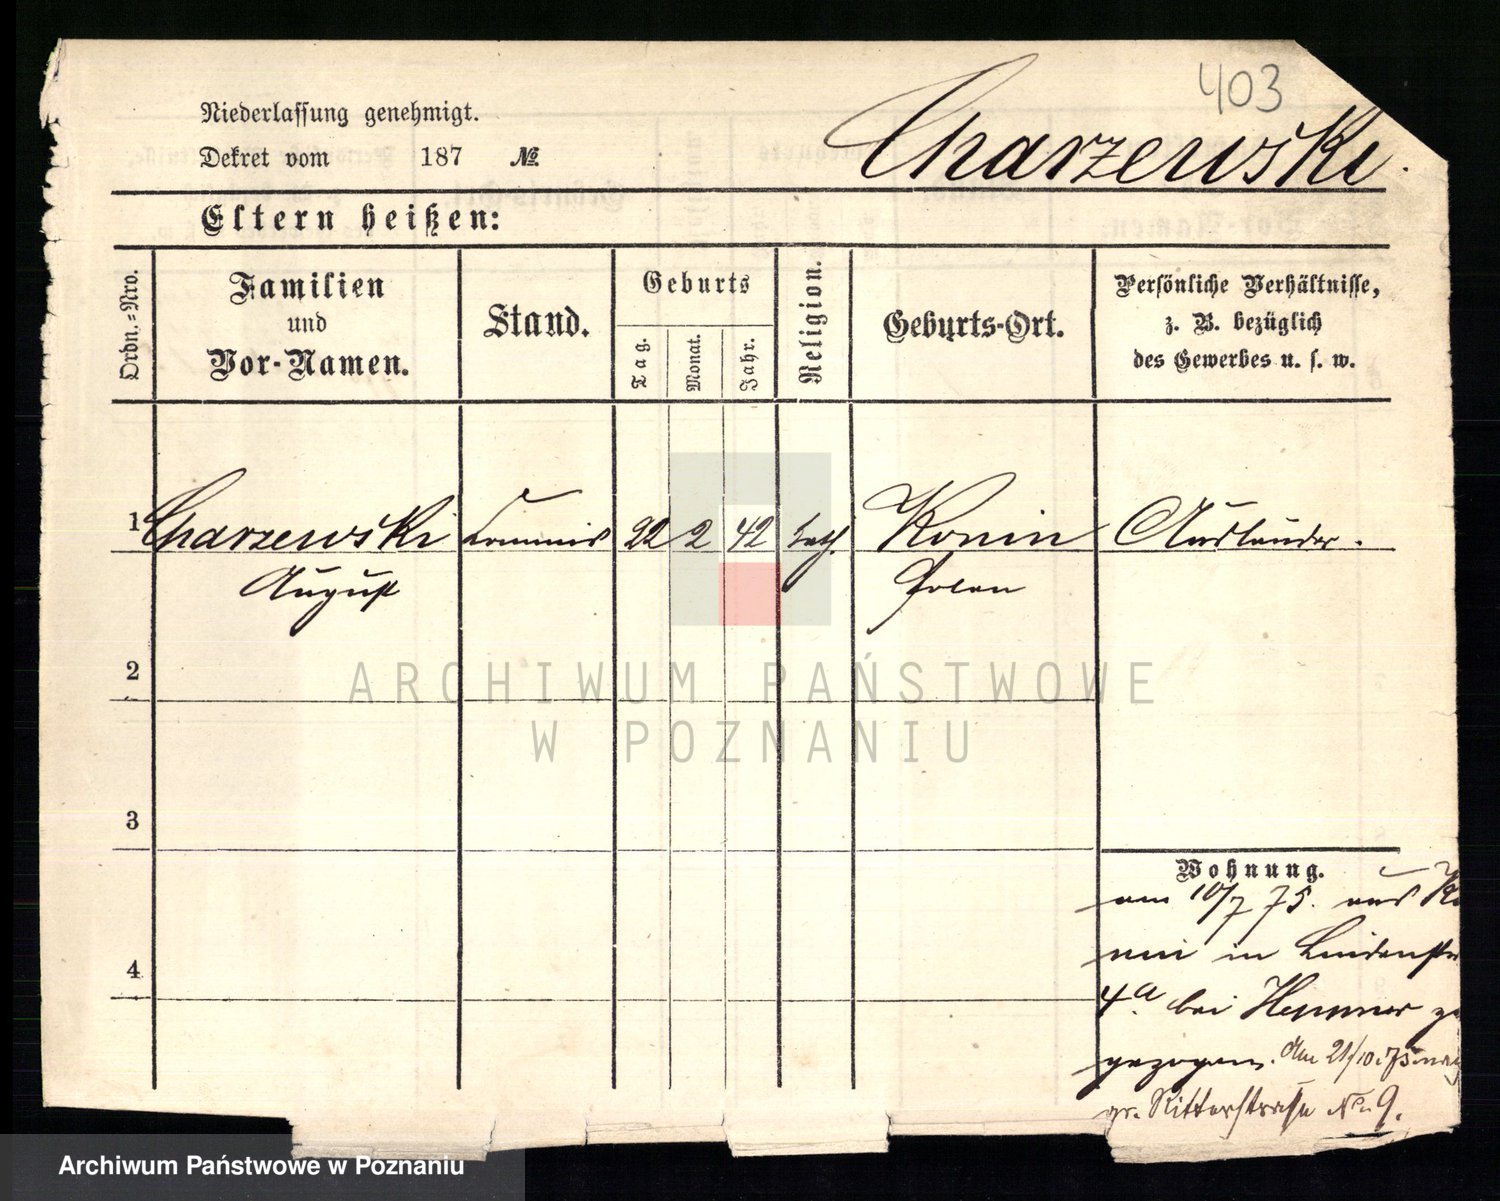 403
Niederlassung genehmigt.
Dekret vom 187 №
Charzewski.
Eltern heißen:
Ordn.-Nro.
Familien
und
Vor-Namen.
Stand.
Geburts
Tag.
Monat.
Jahr.
Religion.
Geburts-Ort.
Persönliche Verhältnisse,
z. B. bezüglich
des Gewerbes u. s. w.
1 Charzewski Commis 22 2 42 kath. Konin Ausländer.
August Polen
2
ARCHIWUM PAŃSTWOWE
W POZNANIU
3
Wohnung.
am 10/7 75. aus Ko
nin in Lindenstr
4a bei Hemmer zu
gezogen. Am 21/10.75 nach
gr. Ritterstraße No. 9.
4
Archiwum Państwowe w Poznaniu